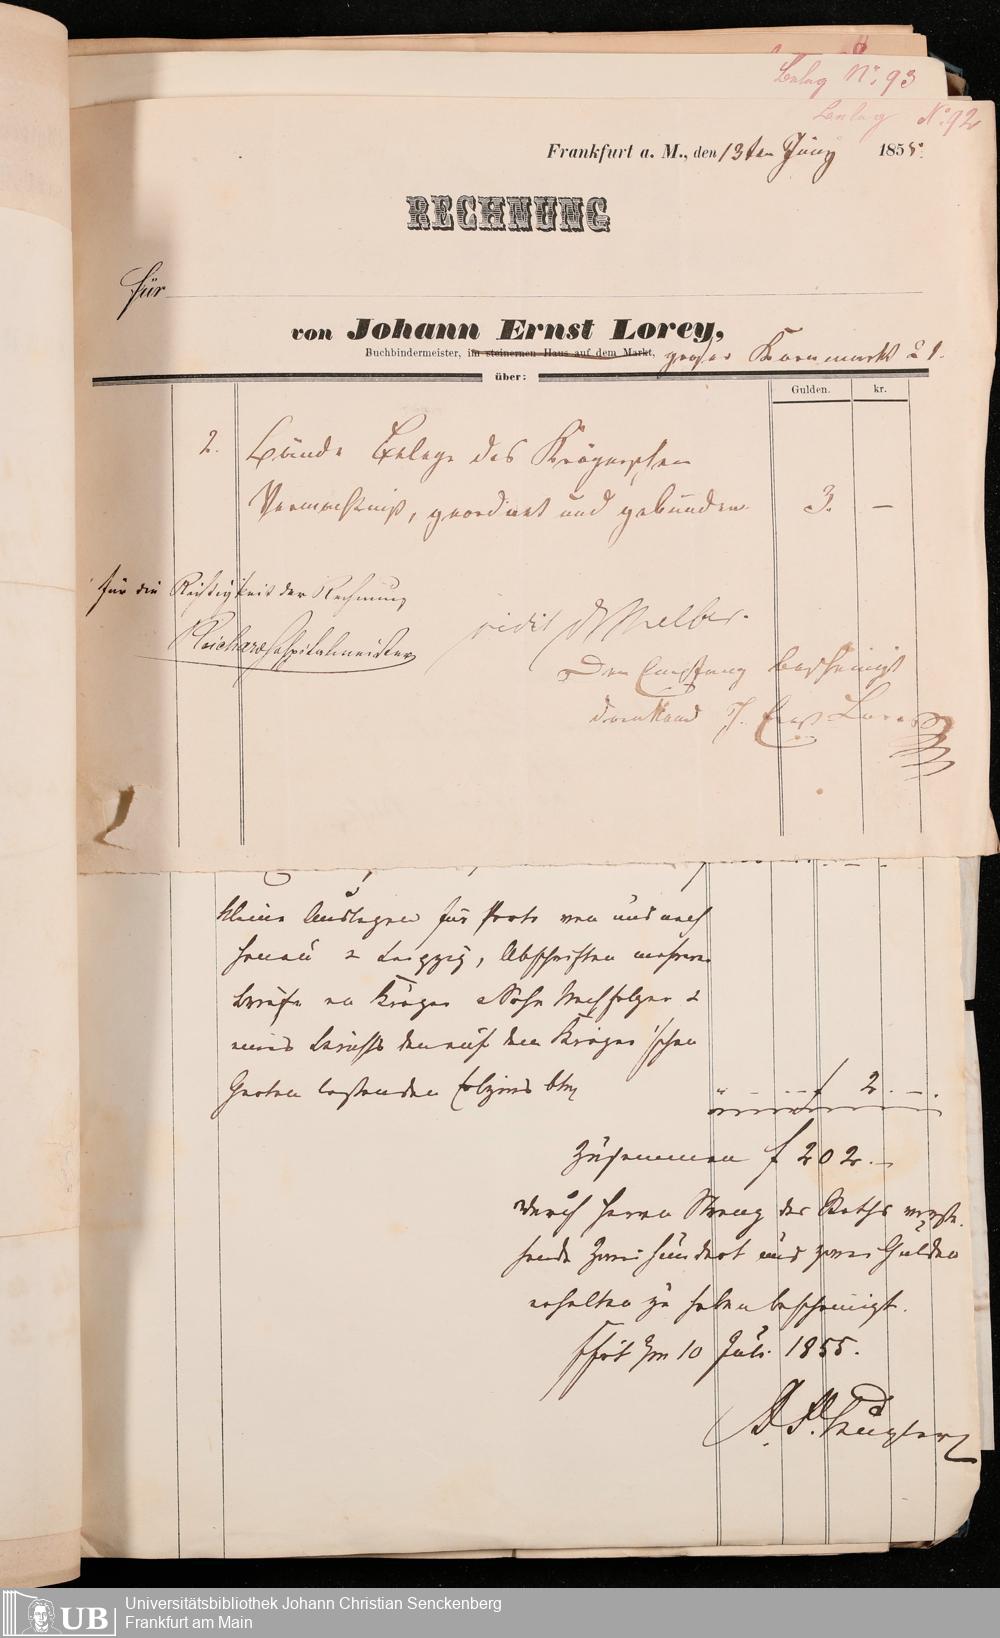 Beleg No. 93
Beleg No. 92
Frankfurt a. M., den 13ten Juny 1855.
RECHNUNG
Für
von Johann Ernst Lorey,
Buchbindermeister, im steinernen Haus auf dem Markt, großer Kornmarkt 21.
über:
Gulden. kr.
2. Bände Belege des Krögerschen
Vermächtniß, geordnet und gebunden 3. —
für die Richtigkeit der Rechnung
Reichard Hospitalmeister
vidit Dr Melber.
Den Empfang bescheinigt
dankend J. Ernst Lorey
kleine Auslagen für Porto von und nach
Hanau & Leipzig, Abschriften mehrerer
Briefe an Kröger & Sohn Nachfolger &
eines Berichts den auf dem Kröger'schen
Garten lastenden btr f 2. —.
Zusammen f 202. —
Durch Herrn des Raths
zwei hundert und zwei Gulden
erhalten zu haben bescheinigt.
Ffrt am 10 Juli 1855.
UB
Universitätsbibliothek Johann Christian Senckenberg
Frankfurt am Main